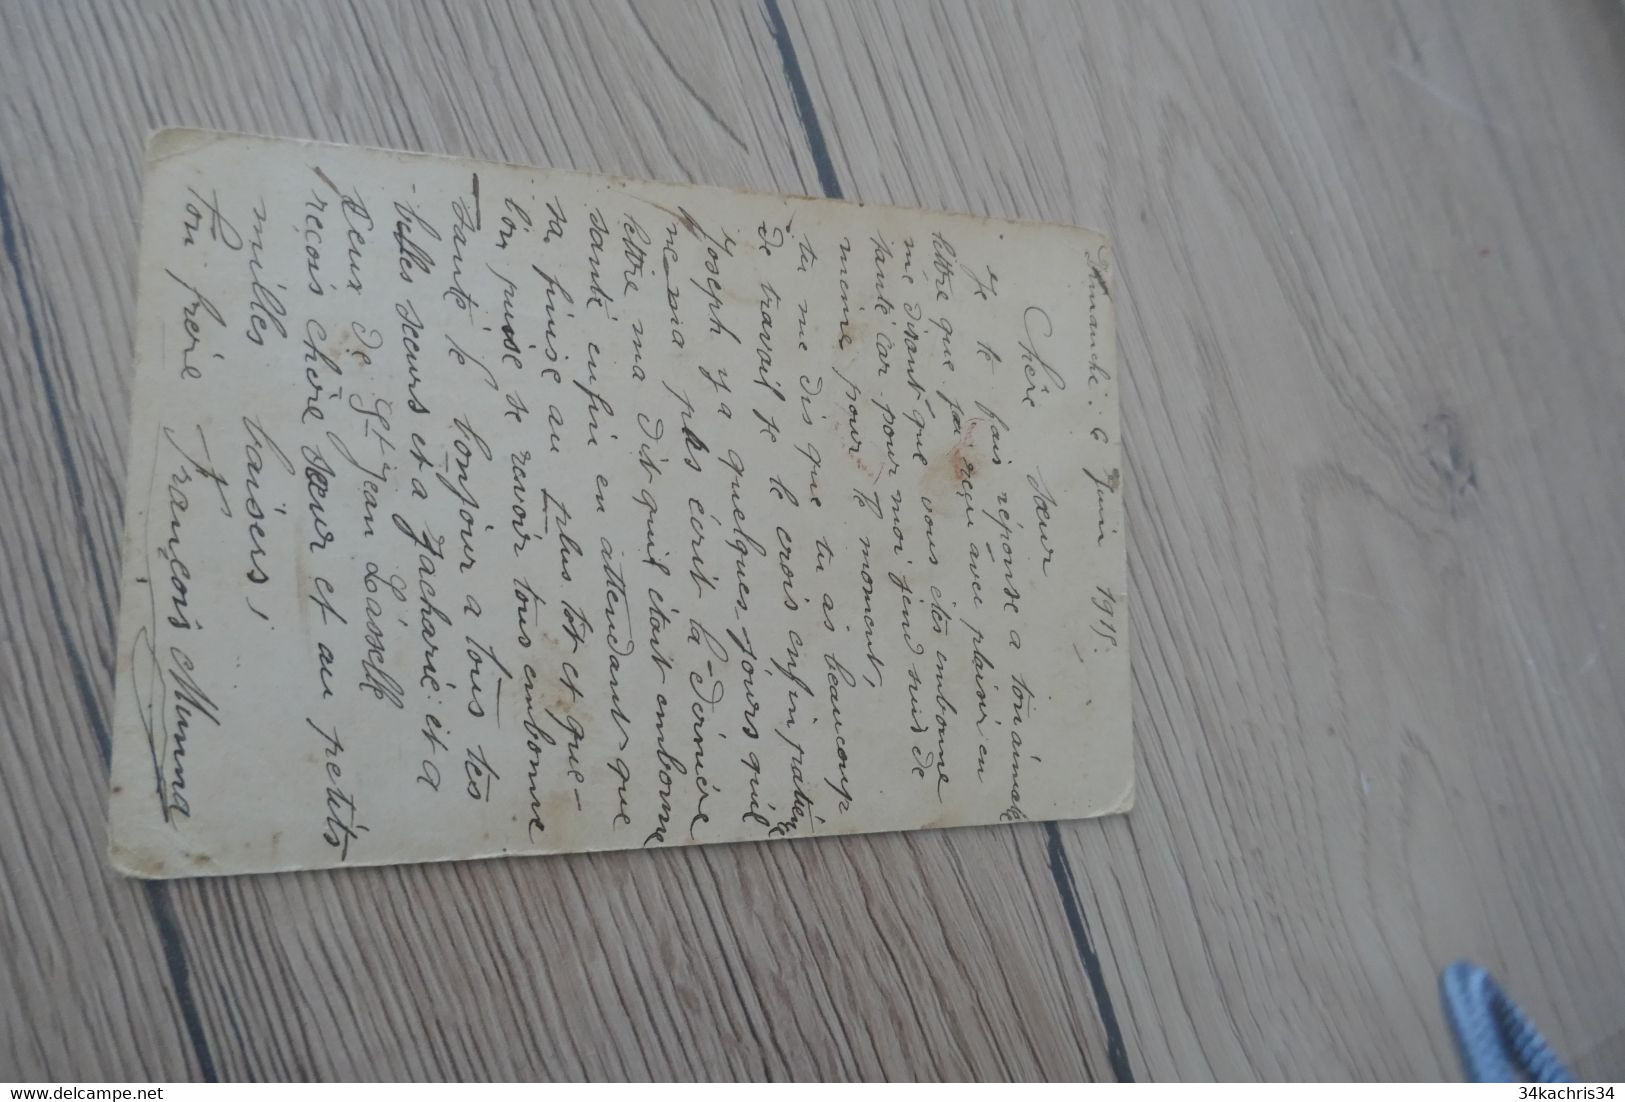 Dimanche. 6 Juin 1915.
Chère sœur
Je te fais réponse a ton aimable
lettre que ja reçu avec plaisir en
me disant que vous êtes embonne
santé car pour moi jend suis de
meme pour le moment,
tu me dis que tu as beaucoup
de travail je le crois enfin patience
Joseph y a quelques jours quil
ne ma pas écrit la dernière
lettre ma dit quil était embonne
santé enfin en attendant que
sa finise au plus tôt et que
lon puisse se revoir tous embonne
santé le bonjour a tous tes
belles sœurs et a Zacharie et a
deux de St Jean Lasselle
recois chère sœur et au petits
milles baisers!
Ton frère François Munna
34kachris34